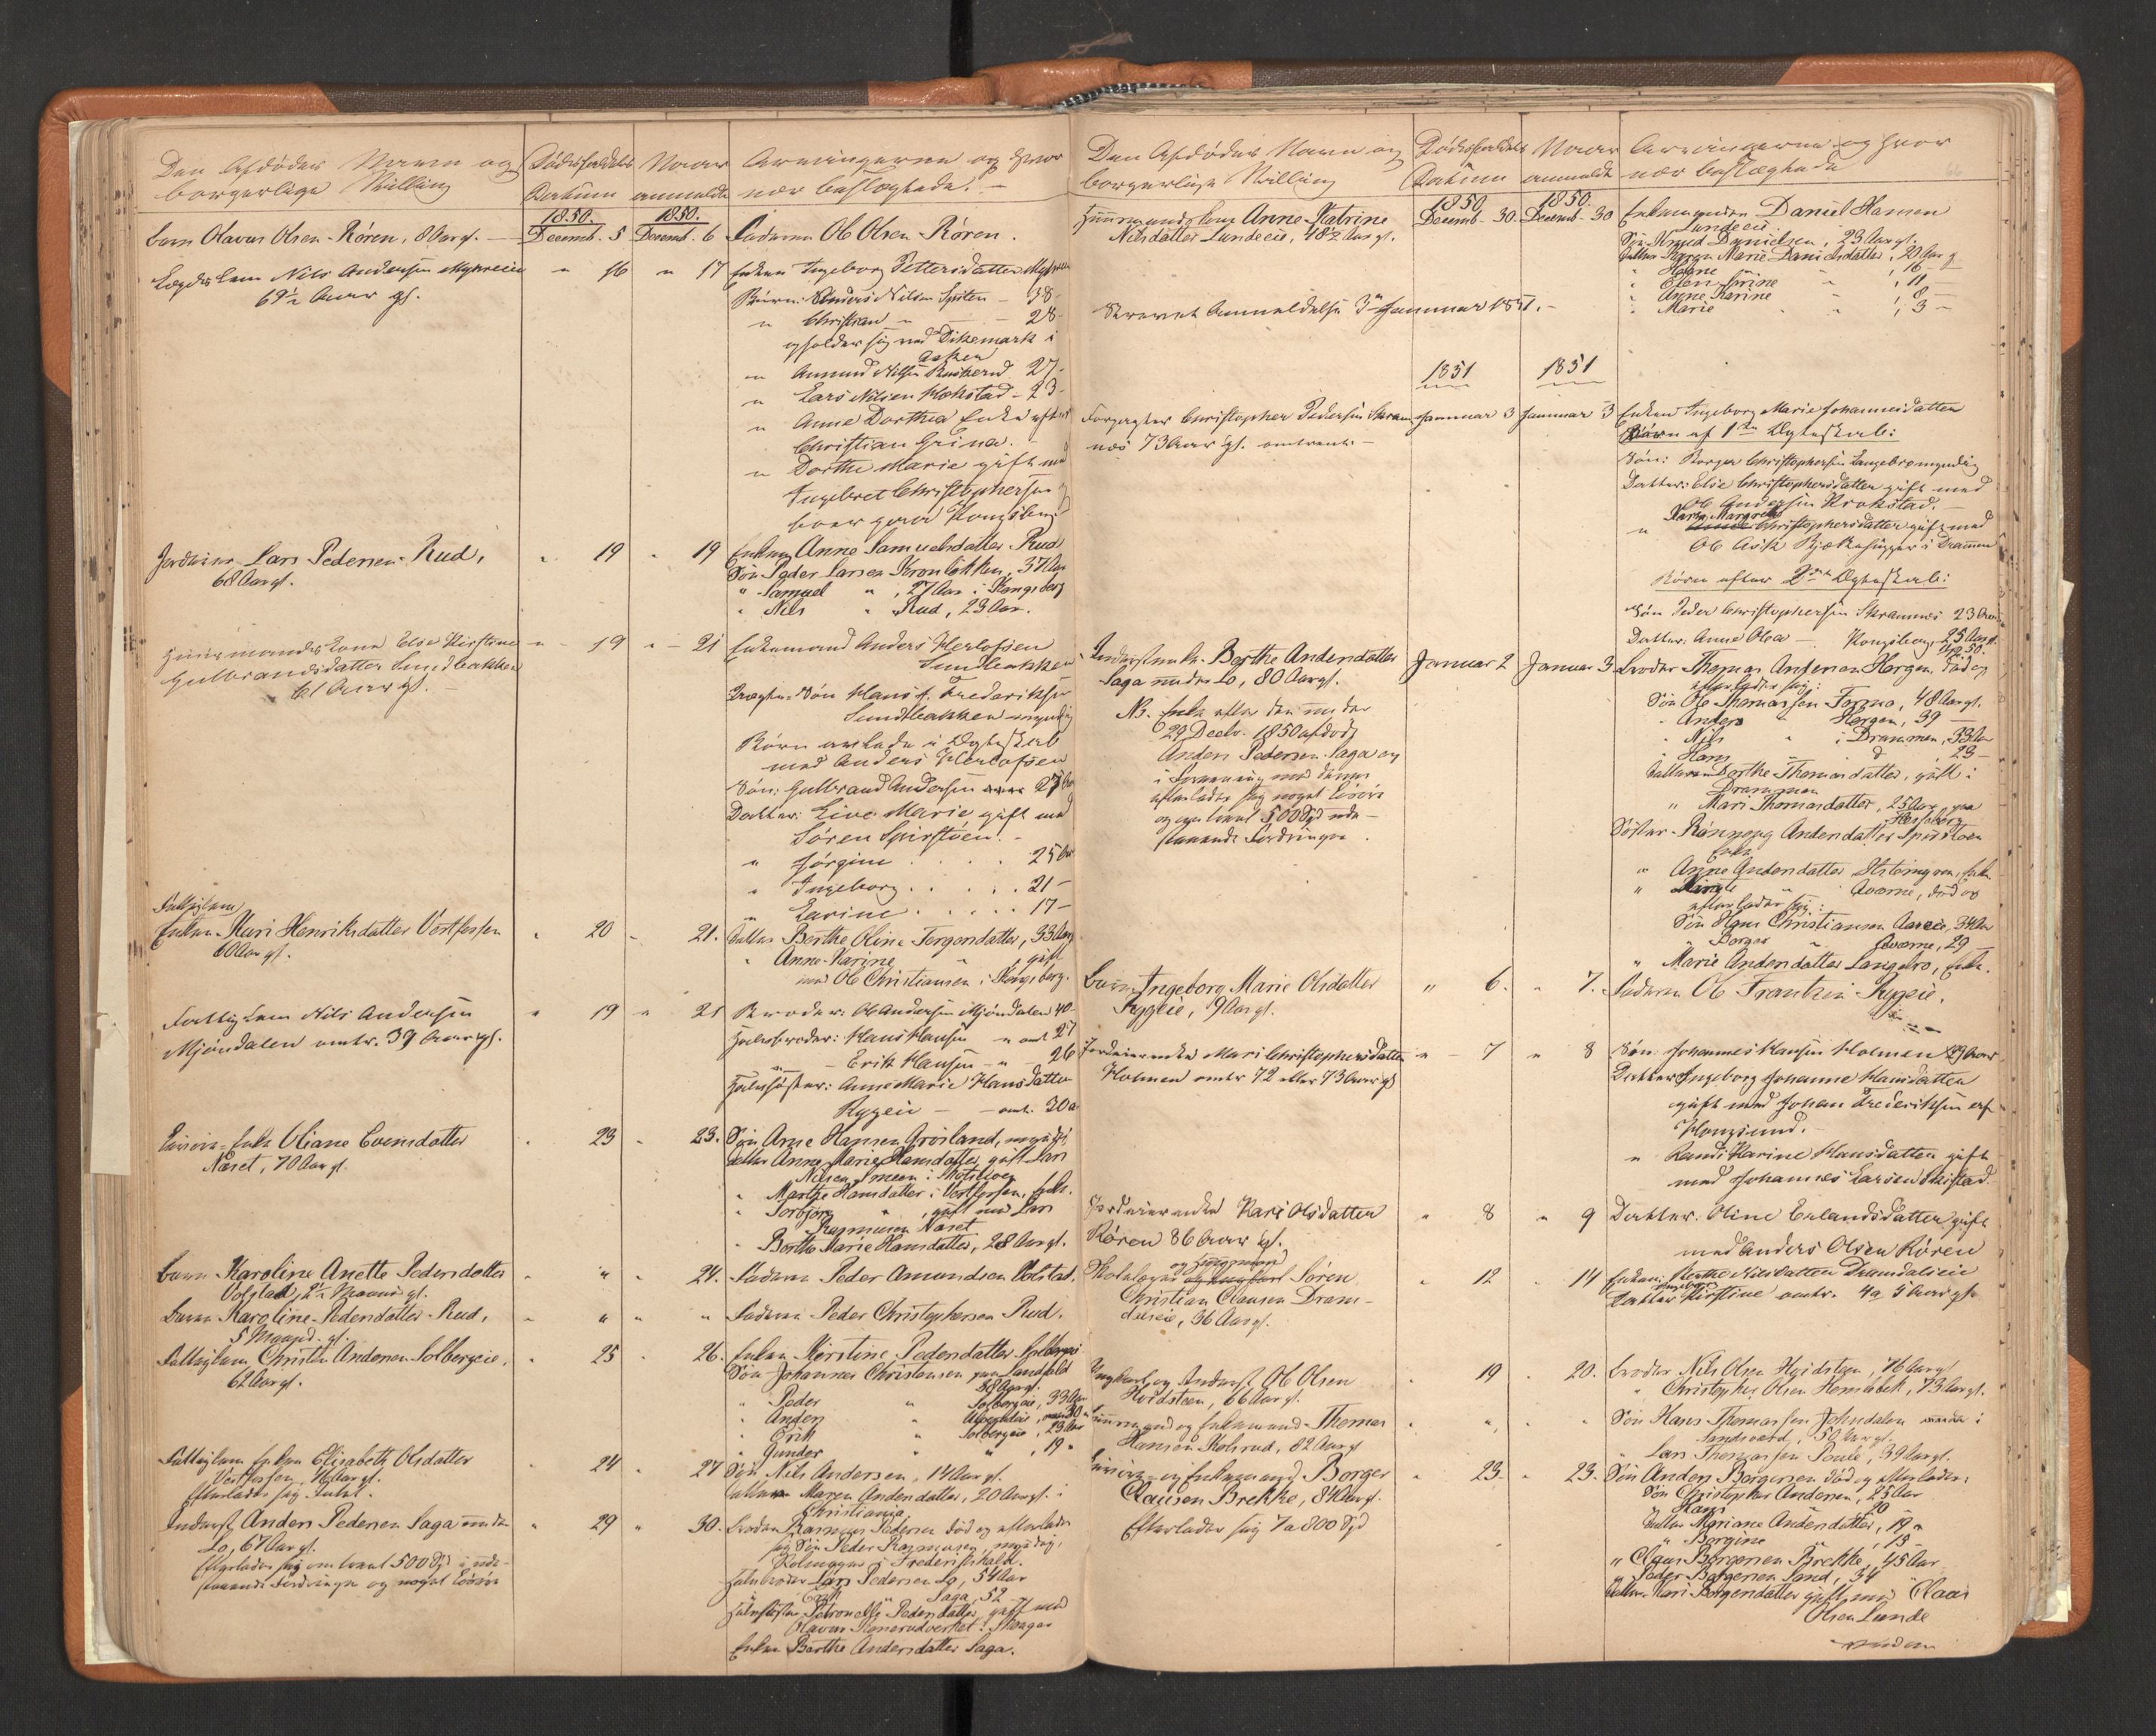 Den Afdødes Navn og
borgerlige Stilling
Dødsfaldets
Datum
Naar
anmeldt
Arvingerne og hvor
nær beslægtede.
1850.
1850.
Barn Olavus Olsen Røren, 8 Aar gl.
Decemb. 5
Decemb. 6
Faderen Ole Olsen Røren.
Lægdslem Nils Andersen Myhreeie
69½ Aar gl.
" 16 " 17
Enken Ingeborg Pettersdatter
Børn: Anders Nilsen Spiten - 38
" Christian " - 28
opholder sig ved Dikemark i
Asker
" Amund Nilsen 27
" Lars Nilsen Hokstad - 23
" Anne Dorthea Enke efter
Christian
" Dorthe Marie gift med
Ingebret Christophersen
Kongsberg
Jordeier Lars Pedersen Rud,
68 Aar gl.
" 19 " 19
Enken Anne Samuelsdatter Rud
Søn Peder Larsen Kronløkken, 37 Aar
" Samuel " , 27 Aar i Kongsberg
" Nils " Rud, 23 Aar.
Huusmandskone Else Kirstine
Gulbrandsdatter Sundbakken
61 Aar gl.
" 19 " 21
Enkemand Anders Herlofsen
Sundbakken
Søn Hans J. Frederiksen
Sundbakken myndig
Børn avlede i Ægteskab
med Anders Herlofsen
Søn: Gulbrand Andersen 27 Aar
Datter: Live Marie, gift med
Søren Spirstøen.
" Jørgine 25 Aar
" Ingeborg 21 -
" Larine 17 -
Fattiglem
Enken Kari Henriksdatter Vestfossen
60 Aar gl.
" 20 " 21.
Datter Berthe Oline Torgersdatter, 33 Aar
" Anne Karine " , gift
med Ole Christiansen i Kongsberg.
Fattiglem Nils Andersen
Mjøndalen omtr. 39 Aar gl.
" 19 " 21
Broder: Ole Andersen Mjøndalen 40
Halvbroder: Hans Hansen " omt 27
" - Erik Hansen - " 26
Halvsøster: Anne Marie Hansdatter
Rygeie - - omt. 30 a
Enke Oliane Evensdatter
Næset, 70 Aar gl.
" 23 " 23.
Søn Arne Hansen Grøsland, myndig
Datter Anne Marie Hansdatter gift Lars
Nilsen Smeen i
" Marthe Hansdatter i Vestfossen, Enke.
" Torbjørg " , gift med Lars
Rasmusen Næset
" Berthe Marie Hansdatter, 28 Aar gl.
Barn Karoline Anette Pedersdatter
Volstad, 2½ Maaned gl.
" " " 24.
Faderen Peder Amundsen Volstad.
Barn Karoline Pedersdatter Rud,
5 Maaned. gl.
" " " "
Faderen Peder Christophersen Rud.
Fattiglem Christen Andersen Solbergeie,
62 Aar gl.
" 25 " 26.
Enken Kirstine Pedersdatter Solbergeie
Søn Johannes Christensen paa Landfald
38 Aar gl.
" Peder " Solbergeie, 33 Aar
" Anders " 30
" Erik " Solbergeie, 23 Aar
" Gunder " " , 19 "
Fattiglem Enken Elisabeth Olsdatter
Vestfossen, Aar gl.
Efterlader sig Intet.
" 24 " 27
Søn Nils Andersen, 14 Aar gl.
Datter Maren Andersdatter, 20 Aar gl. i
Christiania
Inderst Anders Pedersen Saga under
Lo, 67 Aar gl.
Efterlader sig om trent 500 Spd i ude-
staaende Fordringer og noget Løsøre
" 29 " 30.
Broder Rasmus Pedersen død og efterlader
sig Søn Peder Rasmusen, myndig,
i Frederikshald.
Halvbroder Lars Pedersen Lo, 54 Aar
" Erik " Saga, 52 -
Halvsøster Petronelle Pedersdatter, gift med
Olavus Konerudverket i Skoger
Enken Berthe Andersdatter Saga.
Den Afdødes Navn og
borgerlige Stilling
Dødsfaldets
Datum
Naar
anmeldt
Arvingerne og hvor
nær beslægtede
1850
1850.
Huusmandskone Anne Katrine
Nilsdatter Lundeeie, 48½ Aar gl.
Decemb. 30.
Decemb. 30
Enkemanden Daniel Hansen
Lundeeie
Søn Knud Danielsen, 23 Aar gl.
Datter Maren Marie Danielsdatter, 20 Aar g
" Helene " , 16 -
" Elen Serine " , 11 -
" Anne Karine " , 8 -
" Marie " , 3 -
Skrevet Anmeldelse 3die Januar 1851.
1851
1851
Forpagter Christopher Pedersen Skram-
næs 73 Aar gl. omtrent.
Januar 3
Januar 3
Enken Ingeborg Marie Johannesdatter
Børn af 1ste Ægteskab:
Søn: Borger Christophersen Langebro myndig
Datter: Else Christophersdatter gift med
Ole Andersen Krokstad.
Karen Margrethe
" Christophersdatter gift med
Ole Aas i Drammen
Børn efter 2det Ægteskab:
Søn Peder Christophersen Skramnes 23 Aar
Datter: Anne Olea - Kongsberg 25 Aar gl.
Inderstenke Berthe Andersdatter
Saga under Lo, 80 Aar gl.
NB. Enke efter den under
29 Decbr. 1850 afdøde
Anders Pedersen Saga og
i Forening med denne
efterlader sig noget Løsøre
og omtrent 500 Spd ude-
staaende Fordringer.
Januar 2
Januar 3
Broder Thomas Andersen Horgen, død og
efterlader sig:
Søn Ole Thomassen Formo, 48 Aar gl.
" Anders " Horgen, 39 -
" Nils " i Drammen, 33 Aar
" Hans " d , 23 -
Datteren Dorthe Thomasdatter, gift i
Drammen
" Mari Thomasdatter, 25 Aar, paa
Søster Rønnoug Andersdatter Spirstøen
Enke
" Anne Andersdatter Enke
" Aaserne, død og
efterlader sig:
Søn Hans Christiansen 34 Aar
" Borger " Aaserne, 29 -
" Marie Andersdatter Langebro, Enke.
Barn Ingeborg Marie Olsdatter
Ryggeie, 9 Aar gl.
" 6. " 7.
Faderen Ole Frantzen Ryggeie.
Jordeierenke Mari Christophersdatter
Holmen omtr 72 eller 73 Aar gl
" 7 " 8
Søn Johannes Hansen Holmen 29 Aar
Datter Ingeborg Johanne Hansdatter
gift med Johan Frederiksen
Haugsund.
" Randi Karine Hansdatter gift
med Johannes Larsen
Jordeierenke Kari Olsdatter
Røren 86 Aar gl.
" 8 " 9
Datter: Oline Erlandsdatter gift
med Anders Olsen Røren
Skolelærer og Huusmand Søren
Christian Clausen Dram-
dalseie, 36 Aar gl.
" 12 " 14
Enken: Berthe Nilsdatter Dramdalseie
Datter Kirstine omtr. 4 a 5 Aar gl.
Ungkarl og Inderst Ole Olsen
Hvidsteen, 66 Aar gl.
" 19 " 20.
Broder Nils Olsen Hvidsteen, 76 Aar gl
" Christopher Olsen Hemsbek, 73 Aar gl.
Huusmand og Enkemand Thomas
Hansen Kolsrud, 82 Aar gl
" " " "
Søn Hans Thomassen Johndalen i
Sandsværd, 50 Aar gl.
" Lars Thomassen 39 Aar gl.
Enkemand Borger
Clausen Brekke, 84 Aar gl.
Efterlader sig 7 a 800 Spd
" 23. " 23.
Søn Anders Borgersen død og efterlader:
Søn Christopher Andersen, 25 Aar
" Hans " 20 "
Datter Mariane Andersdatter, 19 "
" Borgine " , 13 -
" Claus Borgersen Brekke, 45 Aar
" Peder Borgersen Sand, 34
Datter Kari Borgersdatter gift med Claus
Olsen Lunde